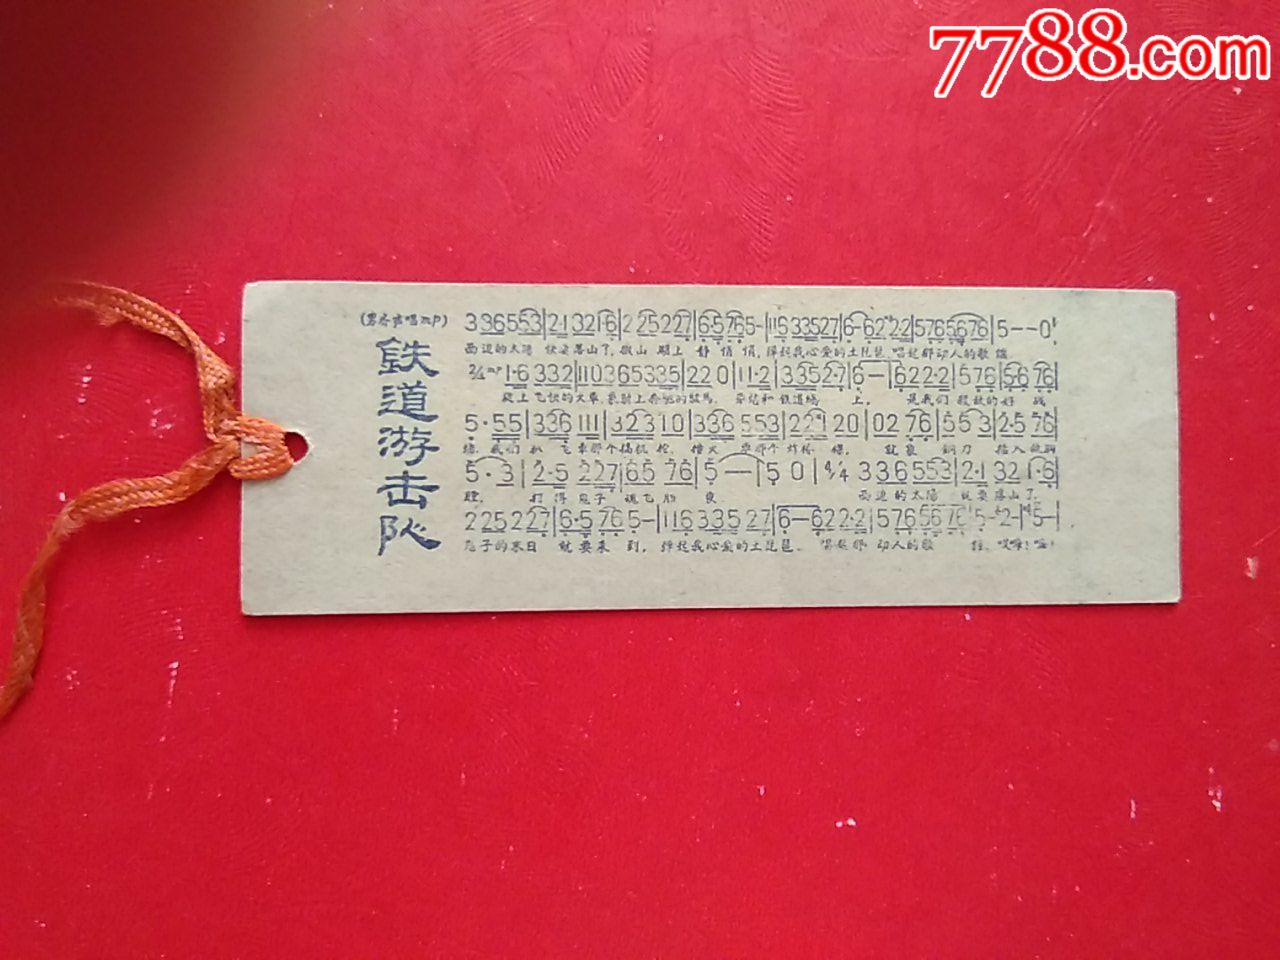 7788.com
(男齐声唱mp)
鉄道游击队
3 36553|2·1 321·6|2 25227|6·5765-|11633527|6-622·2|5765676|5--0|
西边的太阳 快要落山了,微山 湖上 静 悄 悄,弹起我心爱的土琵琶,唱起那动人的歌谣
2/4 mp 1·6 332|11036 5335|22 0|11·2|3352·7|6-|622·2|576|5·676|
爬上飞快的火车,象骑上奔驰的骏马. 车站和 铁道线 上, 是我们 杀敌的好 战
5·55|336 111|3 2310|336 553|227 20|02 76|553|2·5 76|
场. 我们 扒 飞 车那个搞机 枪, 撞火 车那个 炸桥 梁, 就象 钢刀 插入敌胸
5·3|2·5 227|65 76|5-|5 0|4/4 3 36553|2·1 32 1·6|
膛, 打 得 鬼子 魂飞 胆 丧. 西边 的太阳 就要落山了,
2 25227|6·5 765-|116335 27|6-622·2|576567 6|5-2-|5-|
鬼子的末日 就要来 到, 弹起我心爱的土琵琶, 唱起那 动人的歌 谣, 哎嗨! 嗨!